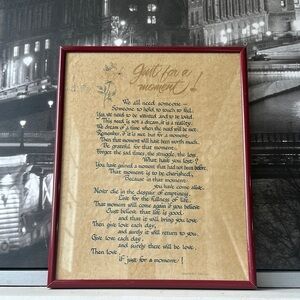 Just for a
moment
We all need someone —
Someone to hold, to touch to feel.
Yes, we need to be wanted and to be loved.
This need is not a dream, it is a reality.
We dream of a time when the need will be met.
Remember, if it is met but for a moment
Then that moment will have been worth much.
Be grateful for that moment.
Forget the sad times, the struggle, the loss.
What have you lost?
You have gained a moment that had not been before.
That moment is to be cherished,
Because in that moment
you have come alive.
Never die in the despair of emptiness.
Live for the fullness of life.
That moment will come again if you believe
Just believe that life is good
and that it will bring you love.
Then give love each day,
and surely it will return to you.
Give love each day,
and surely there will be love.
Then love,
if just for a moment!